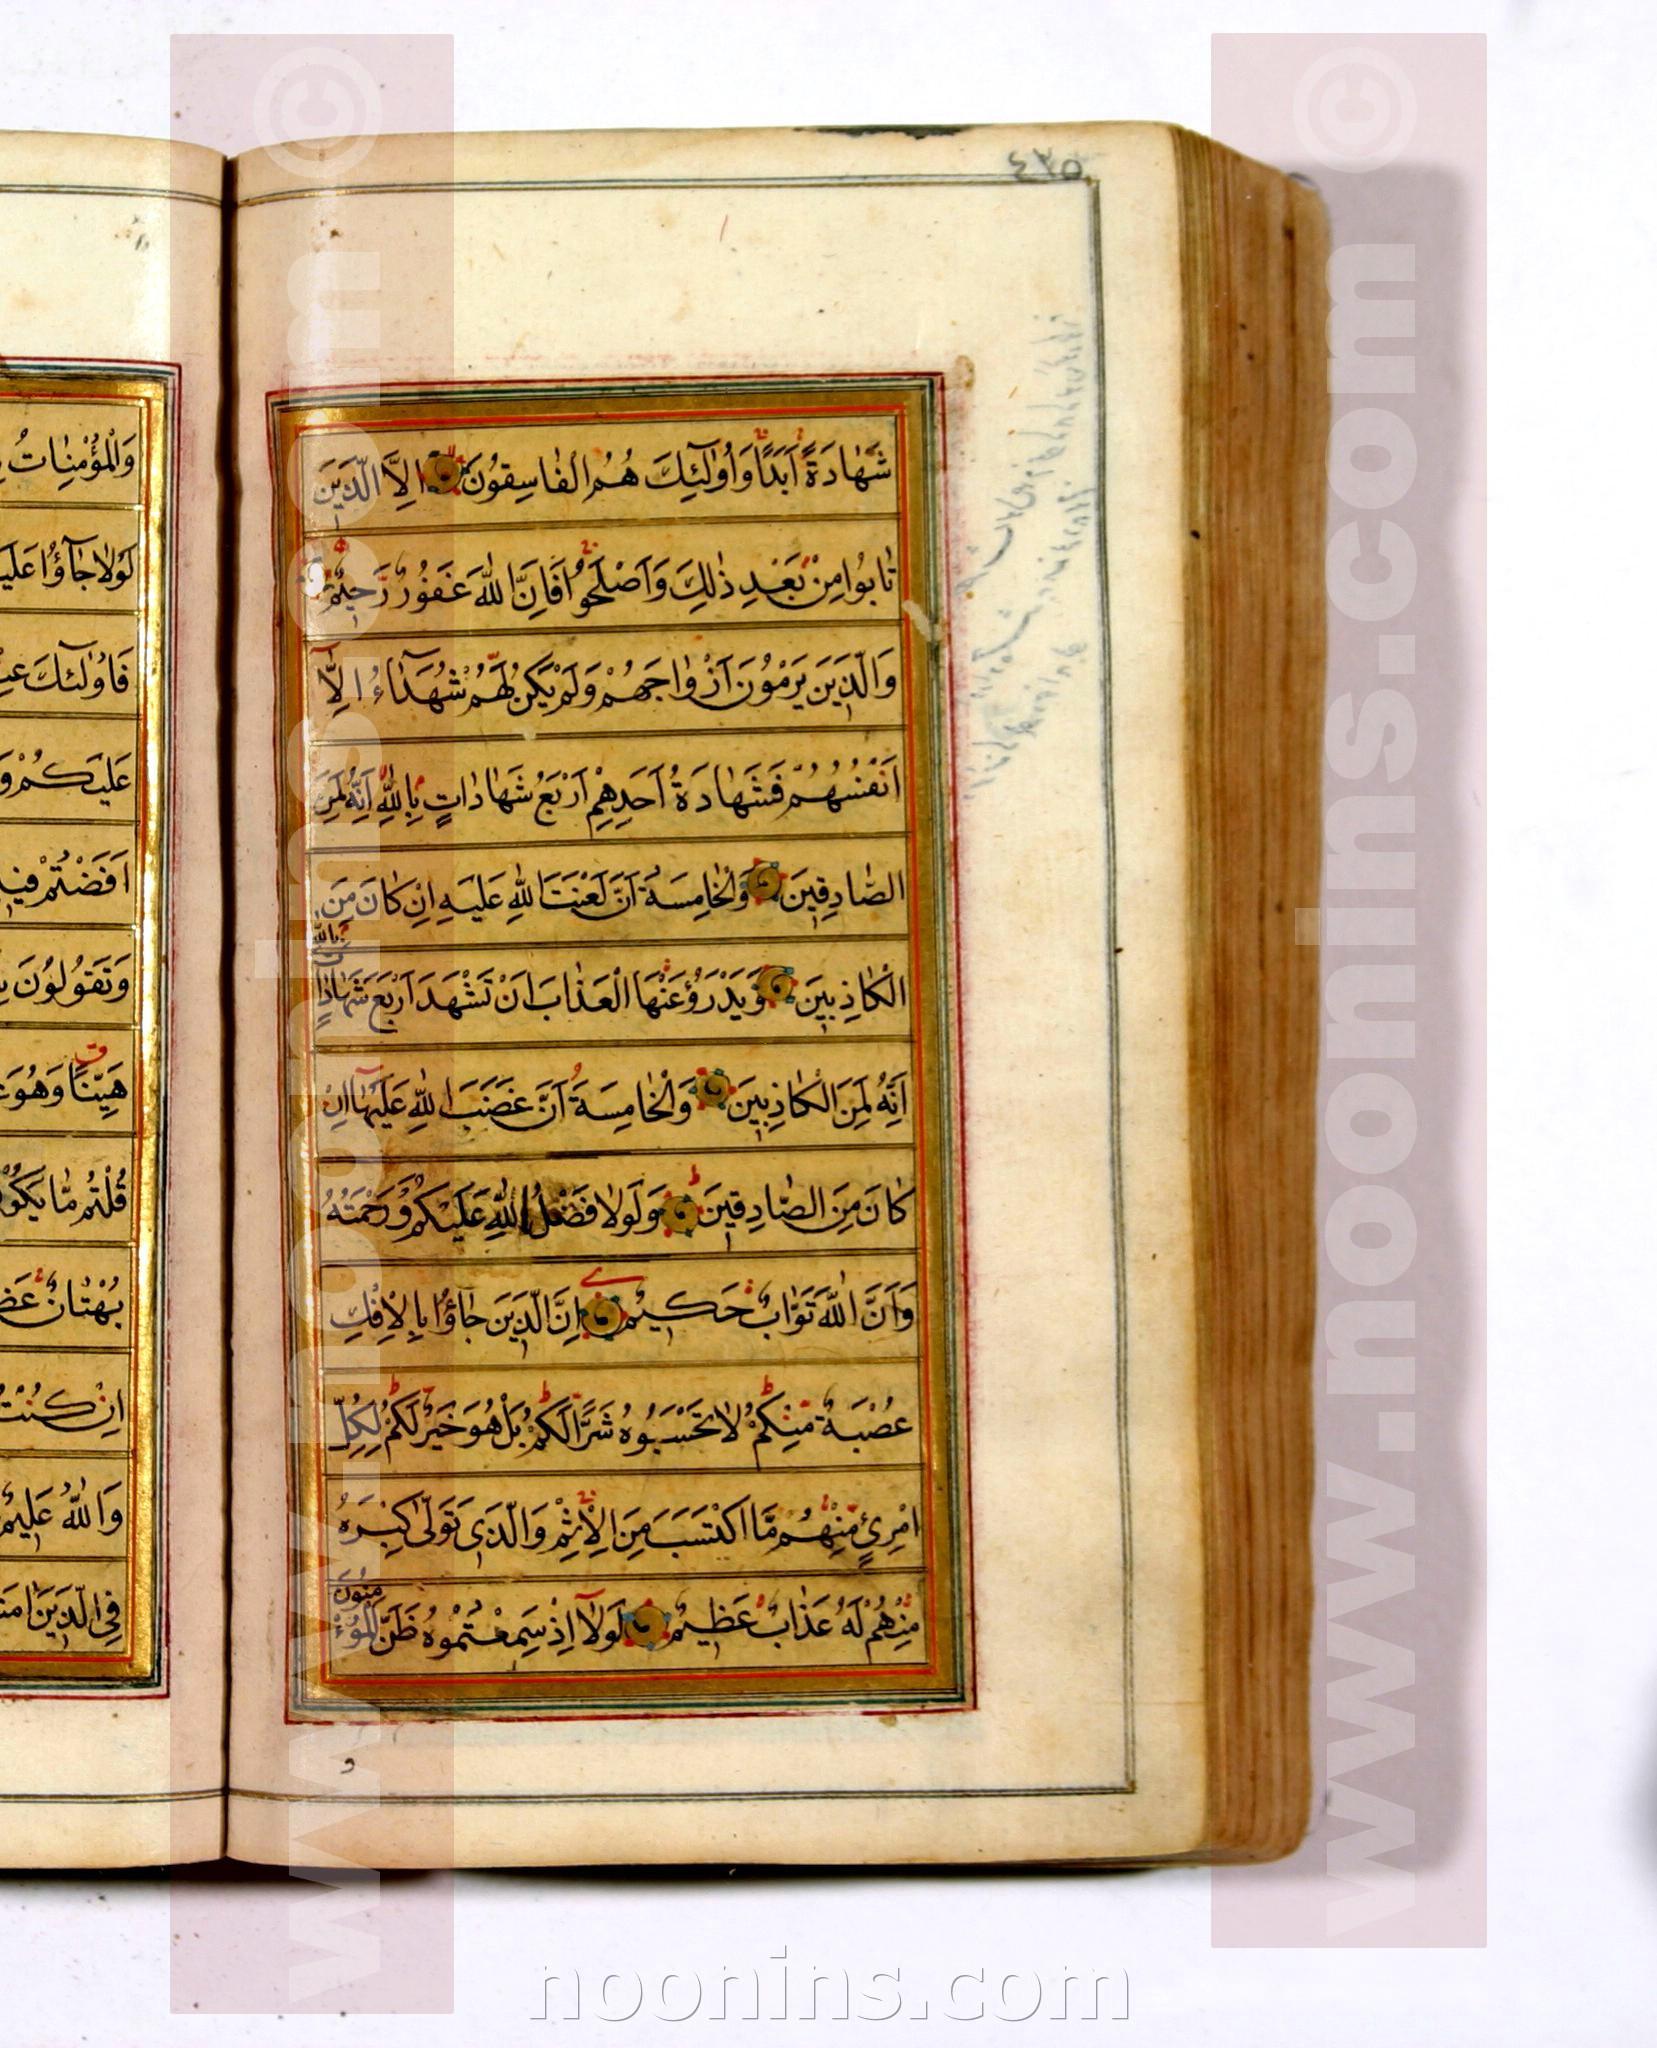 ٤٣٥
شَهَادَةً اَبَدًا وَاُولٰٓئِكَ هُمُ الْفَاسِقُونَ اِلَّا الَّذِينَ
تَابُوا مِنْ بَعْدِ ذٰلِكَ وَاَصْلَحُوا فَاِنَّ اللّٰهَ غَفُورٌ رَحِيمٌ
وَالَّذِينَ يَرْمُونَ اَزْوَاجَهُمْ وَلَمْ يَكُنْ لَهُمْ شُهَدَآءُ اِلَّا
اَنْفُسُهُمْ فَشَهَادَةُ اَحَدِهِمْ اَرْبَعُ شَهَادَاتٍ بِاللّٰهِ اِنَّهُ لَمِنَ
الصَّادِقِينَ وَالْخَامِسَةُ اَنَّ لَعْنَتَ اللّٰهِ عَلَيْهِ اِنْ كَانَ مِنَ
الْكَاذِبِينَ وَيَدْرَؤُ عَنْهَا الْعَذَابَ اَنْ تَشْهَدَ اَرْبَعَ شَهَادَاتٍ بِاللّٰهِ
اِنَّهُ لَمِنَ الْكَاذِبِينَ وَالْخَامِسَةَ اَنَّ غَضَبَ اللّٰهِ عَلَيْهَآ اِنْ
كَانَ مِنَ الصَّادِقِينَ وَلَوْلَا فَضْلُ اللّٰهِ عَلَيْكُمْ وَرَحْمَتُهُ
وَاَنَّ اللّٰهَ تَوَّابٌ حَكِيمٌ اِنَّ الَّذِينَ جَآؤُا بِالْاِفْكِ
عُصْبَةٌ مِنْكُمْ لَا تَحْسَبُوهُ شَرًّا لَكُمْ بَلْ هُوَ خَيْرٌ لَكُمْ لِكُلِّ
امْرِئٍ مِنْهُمْ مَا اكْتَسَبَ مِنَ الْاِثْمِ وَالَّذِي تَوَلّٰى كِبْرَهُ
مِنْهُمْ لَهُ عَذَابٌ عَظِيمٌ لَوْلَآ اِذْ سَمِعْتُمُوهُ ظَنَّ الْمُؤْمِنُونَ
و
وَالْمُؤْمِنَاتُ
لَوْلَا جَآؤُا
فَاُولٰٓئِكَ
عَلَيْكُمْ
اَفَضْتُمْ
وَتَقُولُونَ
هَيِّنًا وَهُوَ
قُلْتُمْ مَا
بُهْتَانٌ
اِنْ
وَاللّٰهُ
فِي الَّذِينَ
www.noonins.com ©
www.noonins.com ©
noonins.com